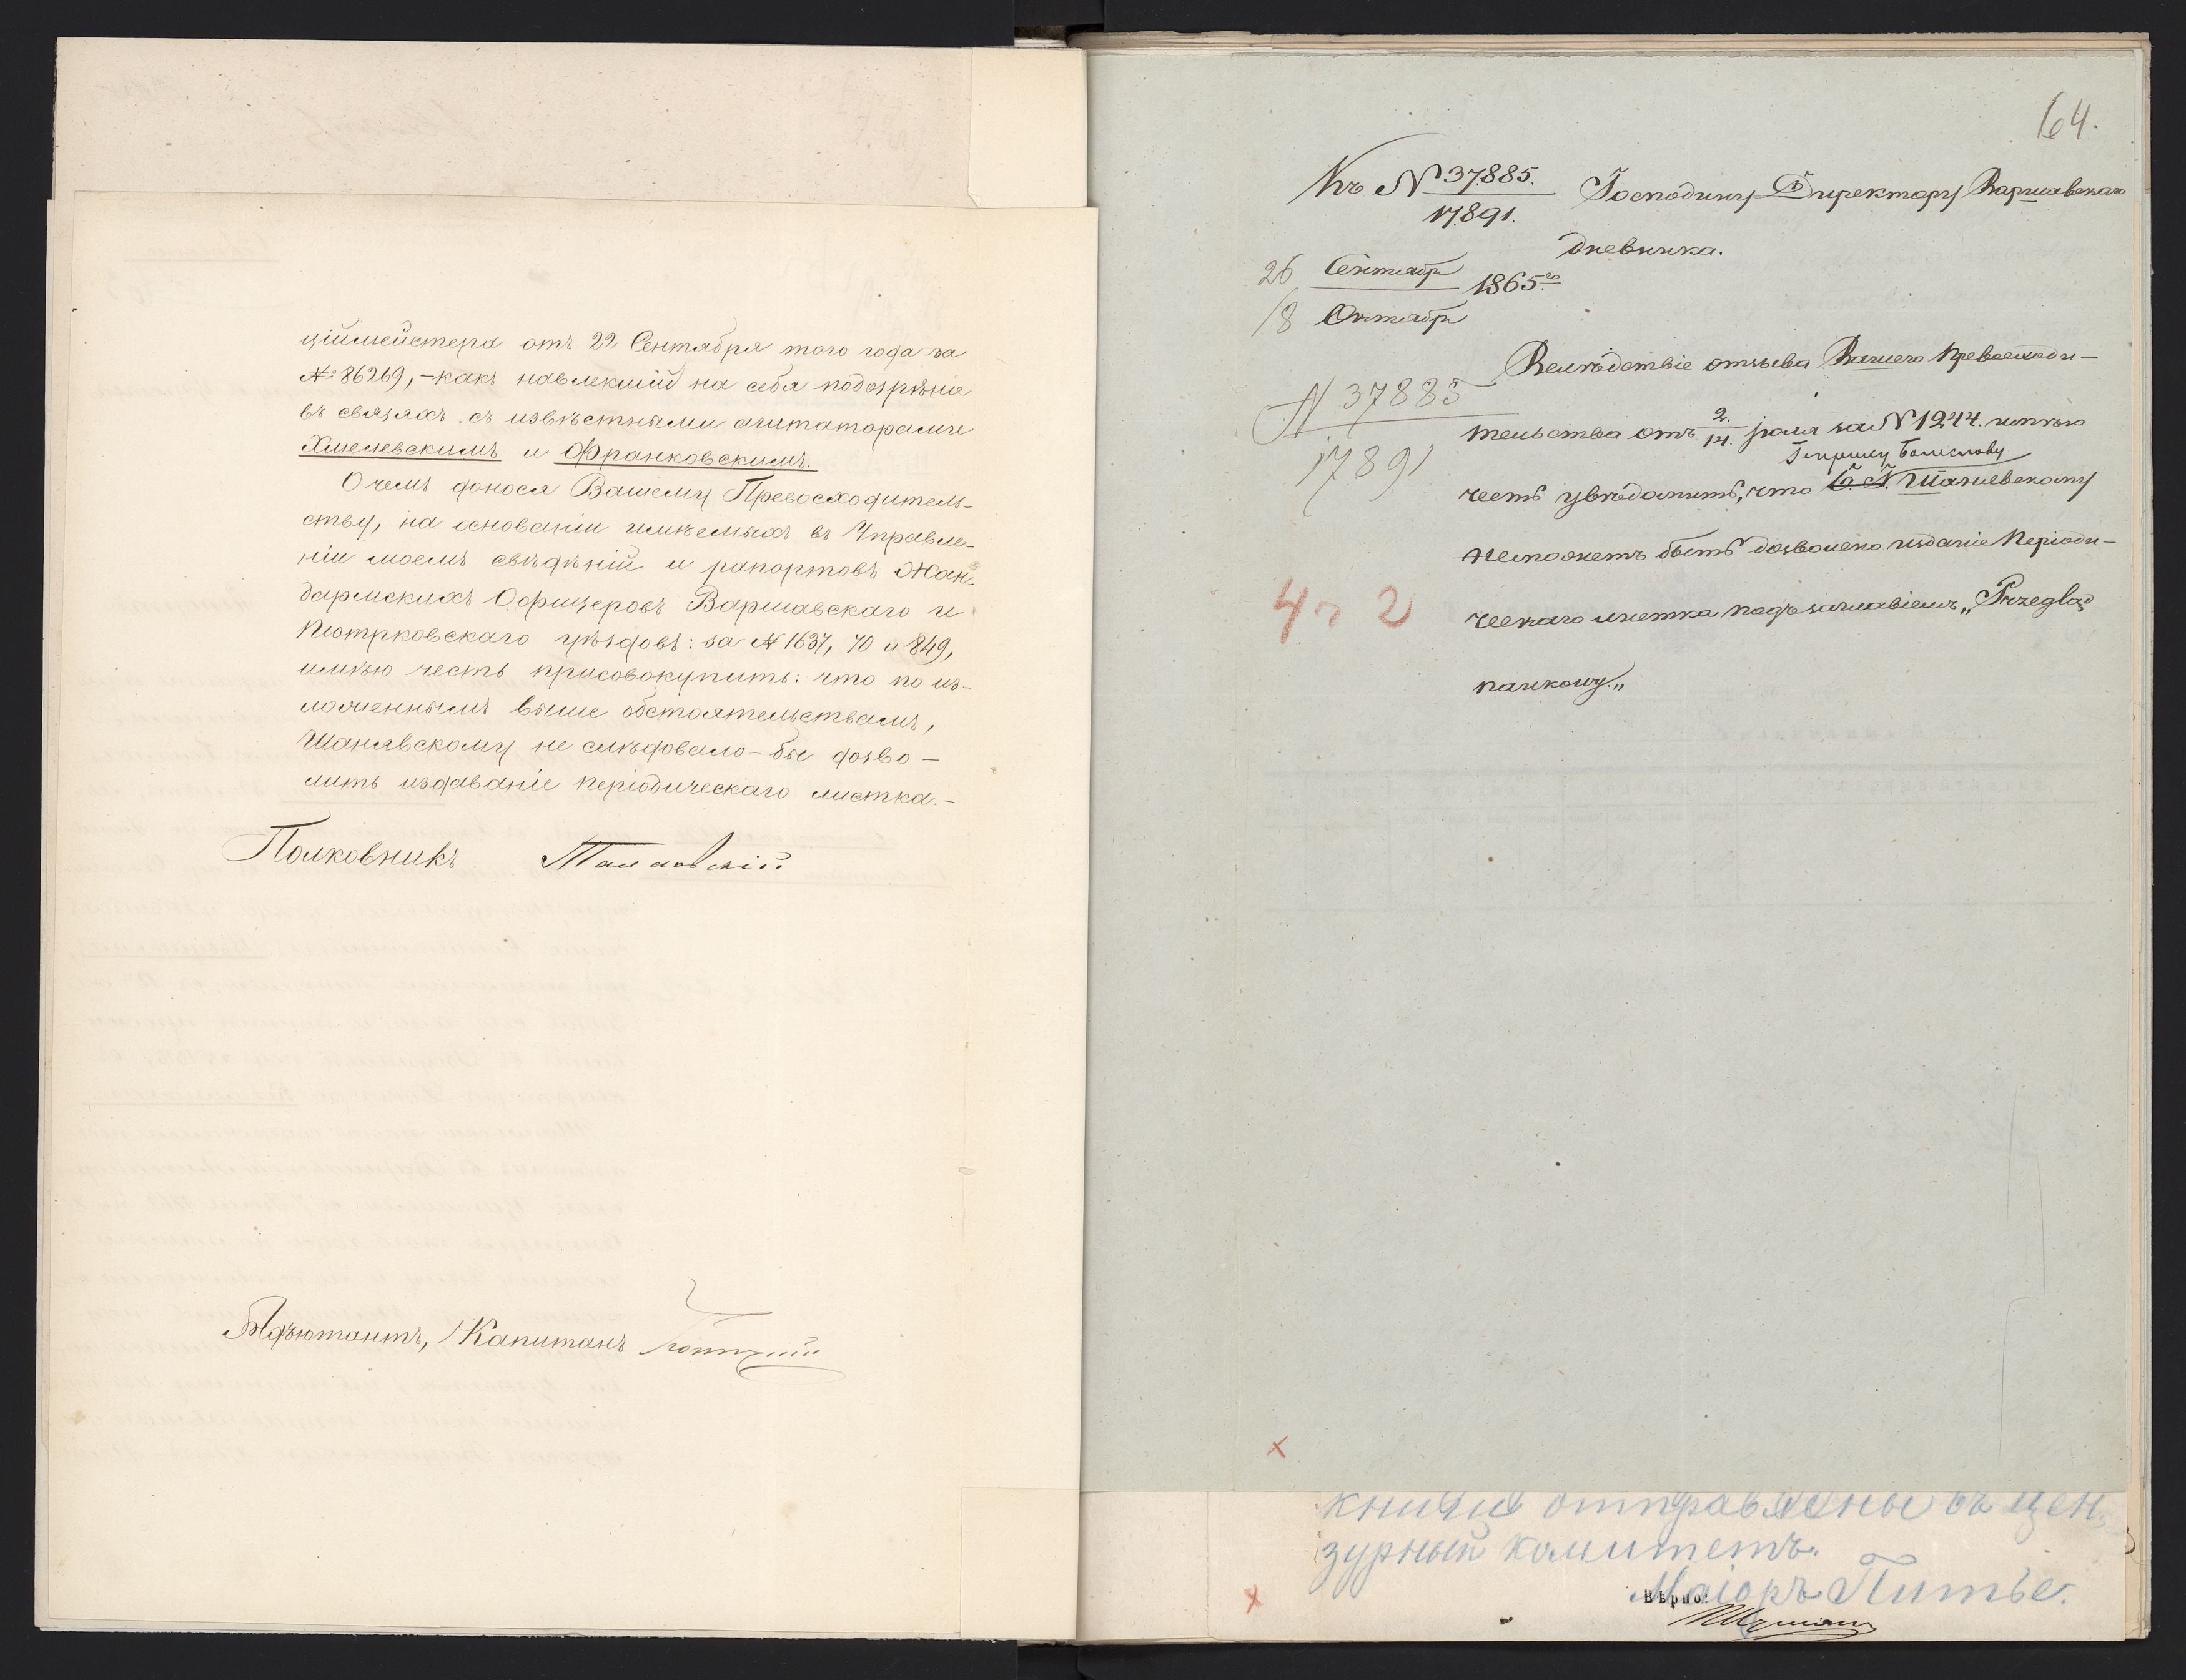 ціймейстера отъ 22 Сентября того года за
№ 86269, – какъ навлекшій на себя подозрѣніе
въ связяхъ съ извѣстными агитаторами
Хмелевскимъ и Франковскимъ.
О чемъ донося Вашему Превосходитель-
ству, на основаніи имѣемыхъ въ Управле-
ніи моемъ свѣдѣній и рапортовъ Жан-
дармскихъ Офицеровъ Варшавскаго и
Піотрковскаго уѣздовъ: за № 1637, 70 и 849,
имѣю честь присовокупить: что по из-
ложеннымъ выше обстоятельствамъ,
Шанявскому не слѣдовало-бы дозво-
лить издаваніе періодическаго листка.–
Полковникъ
Адъютантъ, Капитанъ
64.
Къ № 37885.
17891.
Господину Директору Варшавскаго
дневника.
26 Сентябр 1865го
/8 Октябр
Вслѣдствіе отзыва Вашего Превосходи-
№ 37885
17891
тельства отъ 2./14. іюля за № 1244. имѣю
Генриху Болеславу
честь увѣдомить, что Б. Г. Шанявскому
неможетъ быть дозволено изданіе Періоди-
ческаго листка подъ заглавіемъ „Przegląd
4 2
naukowy.„
книги отправлены въ цен
зурный комитетъ.
Маіоръ Питье.
Вѣрно: